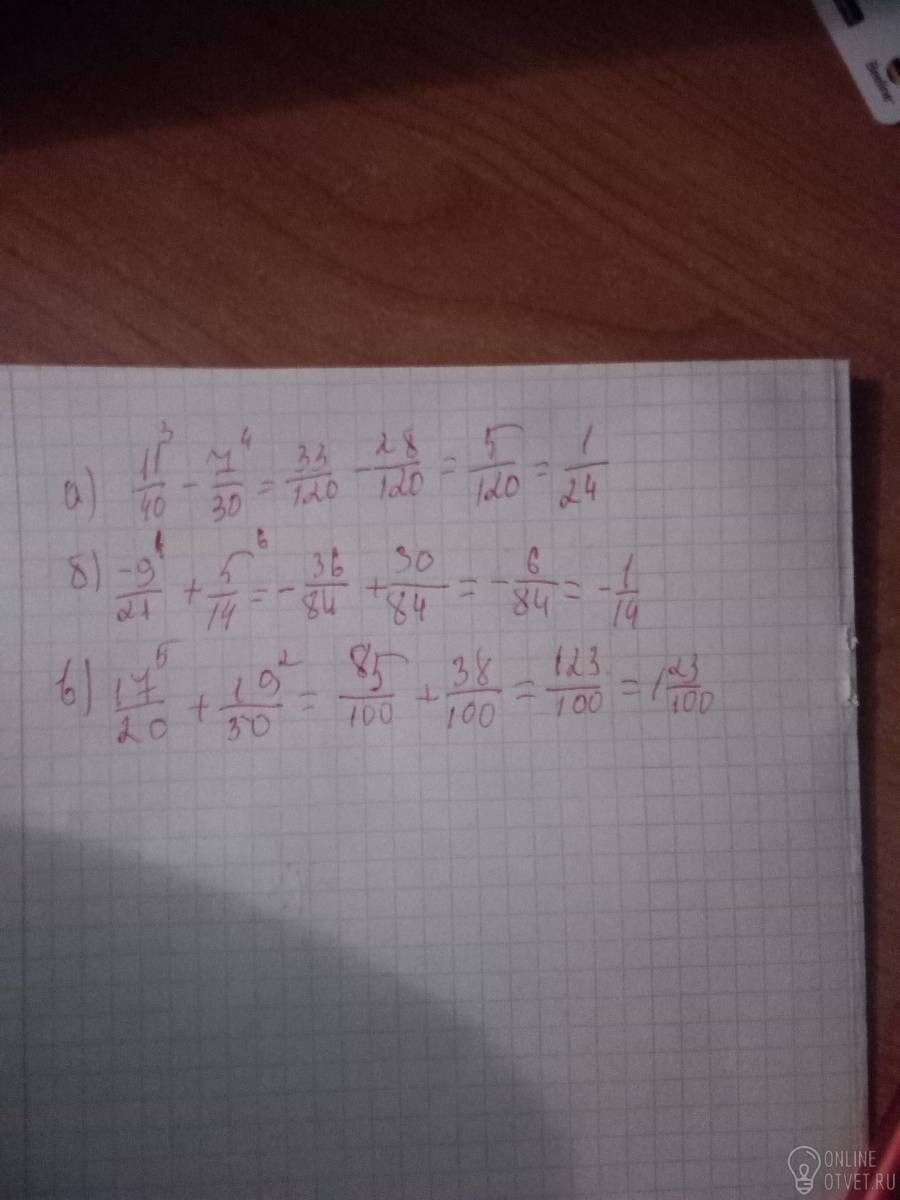 Beeline
а) 11³/40 - 7⁴/30 = 33/120 - 28/120 = 5/120 = 1/24
б) -9⁴/21 + 5⁶/14 = - 36/84 + 30/84 = - 6/84 = - 1/14
в) 17⁵/20 + 19²/50 = 85/100 + 38/100 = 123/100 = 1 23/100
ONLINE
OTVET.RU